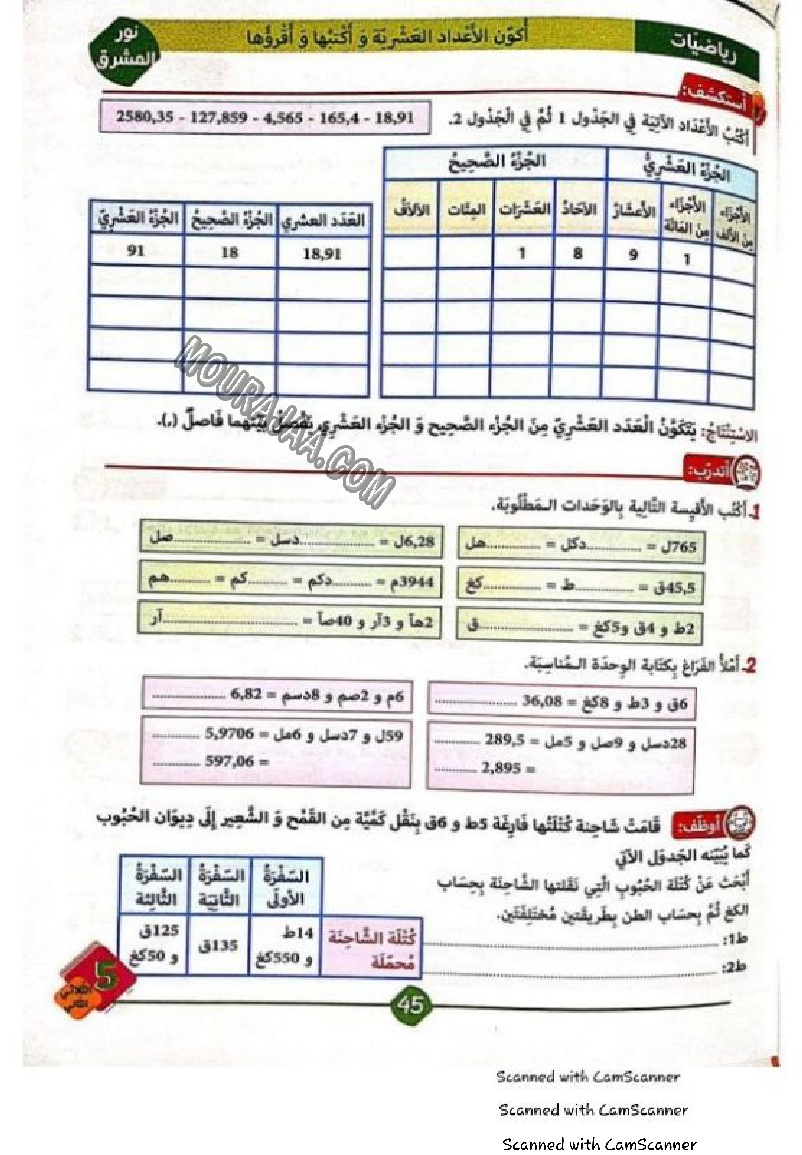 رياضيّات
أكوّن الأعْداد العَشْريّة وَ أكْتبُها وَ أقْرؤُها
نور المشرق
أستكشف:
أكْتُبُ الأعْدَادَ الآتِيَة فِي الجَدْول 1 ثُمَّ فِي الْجَدْول 2.
18,91 - 165,4 - 4,565 - 127,859 - 2580,35
الجُزْءُ العَشْرِيُّ الجُزْءُ الصَّحِيحُ
الأجْزَاء مِنَ الألف الأجْزَاء مِنَ المَائَة الأعشَارُ الآحَادُ العَشَرَات المِئَات الآلَافُ
1 9 8 1
العَدَد العشري الجُزْءُ الصَّحِيحُ الجُزْءُ العَشْرِيّ
18,91 18 91
الاسْتِنْتَاجُ: يَتَكَوَّنُ الْعَدَد العَشْرِيّ مِنَ الجُزْء الصَّحِيح وَ الجُزْء العَشْرِي نَفْصِلُ بَيْنَهما فَاصلٌ (،).
MOURAJAA.COM
أتدرّب:
1ـ أكْتُب الأقْيِسة التَّالِية بِالوَحَدات الـمَطْلُوبَة.
765ل = ..............دكل = ..............هل
6,28ل = ..................دسل = ..................صل
45,5ق = ..............ط = ..............كغ
3944م = ..........دكم = ..........كم = ..........هم
2ط و 4ق و5كغ = ......................ق
2هآ و 3آر و 40صآ = ..............................آر
2ـ أمْلأ الفَرَاغ بِكتَابة الوِحدَة الـمُناسِبَة.
6ق و 3ط و 8كغ = 36,08 ..................
6م و 2صم و 8دسم = 6,82 ..................
28دسل و 9صل و 5مل = 289,5 ............
= 2,895 ............
59ل و 7دسل و 6مل = 5,9706 ............
= 597,06 ............
أوظّف:
قَامَتْ شَاحِنة كُتْلَتُها فَارِغَة 5ط و 6ق بِنَقْل كَمِّيَّة مِن القَمْح وَ الشَّعِير إلَى دِيوَان الحُبُوب
كَما يُبَيّنه الجَدوَل الآتِي
أبْحَث عَنْ كُتْلَة الحُبُوب الَّتِي نَقَلتها الشَّاحِنَة بِحِسَاب
الكغ ثُمَّ بِحسَاب الطن بِطَريقَتين مُختَلِفَتَين.
ط1: ........................................
ط2: ........................................
السّفْرَةُ الأولَى السَّفْرَةُ الثَّانِيَة السّفْرَةُ الثَّالِثة
كُتْلَة الشَّاحِنَة مُحمّلَة 14ط و 550كغ 135ق 125ق و 50كغ
5
45
Scanned with CamScanner
Scanned with CamScanner
Scanned with CamScanner